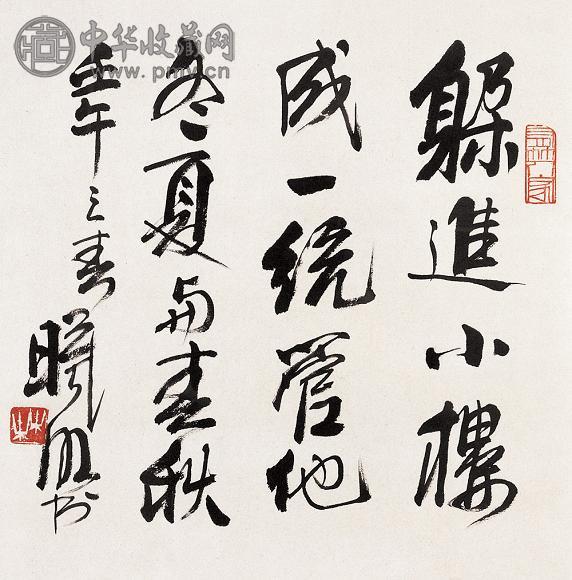 躲進小樓
成一統管他
冬夏與春秋
壬午之春曉明书
中华收藏网
www.pmv.cn